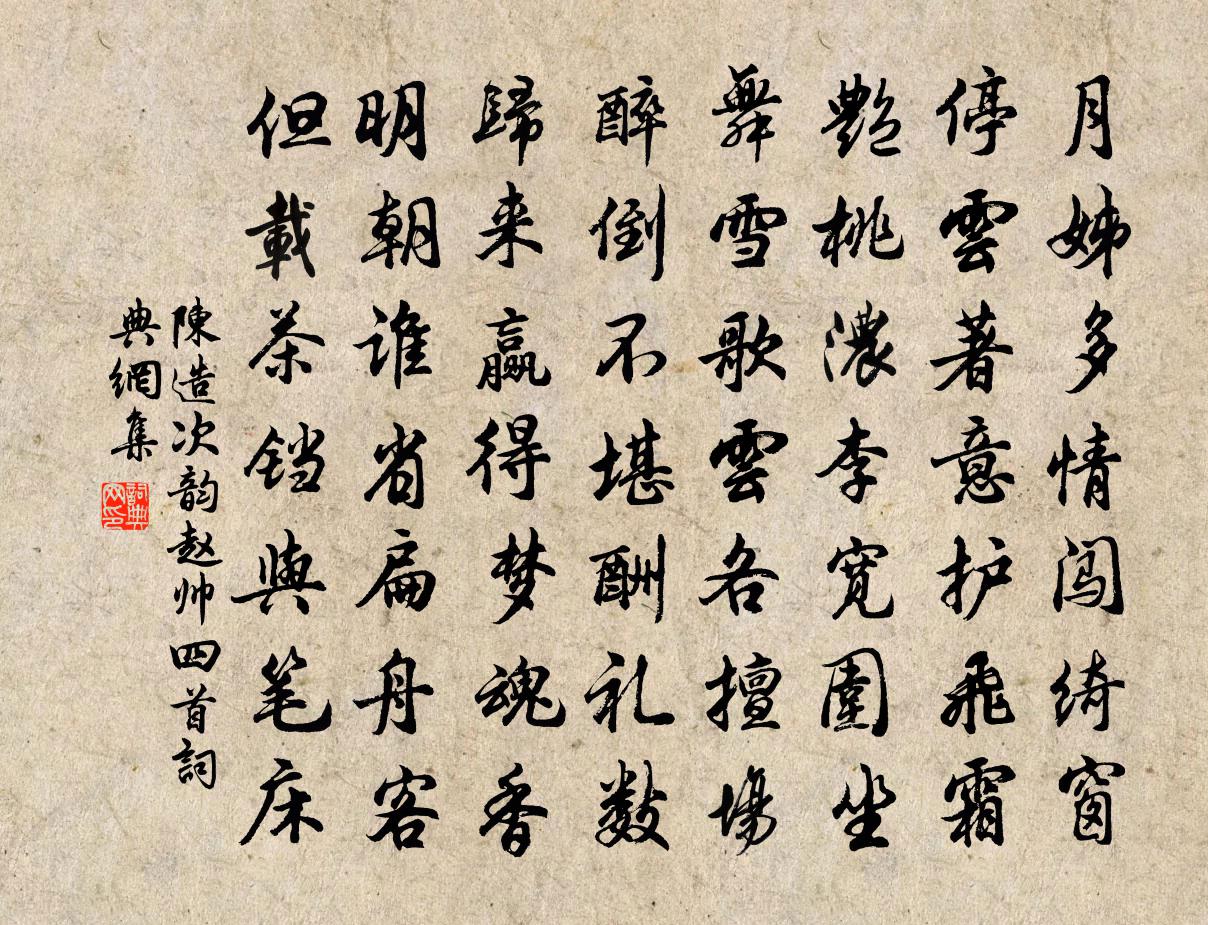 月姊多情闯绮窗
停雲著意护飛霜
艷桃濃李宽圍坐
舞雪歌雲各擅場
醉倒不堪酬礼数
歸来赢得梦魂香
明朝谁省扁舟客
但載茶铛與笔床
陳造次韵赵帅四首詞
典網集
詞典网印